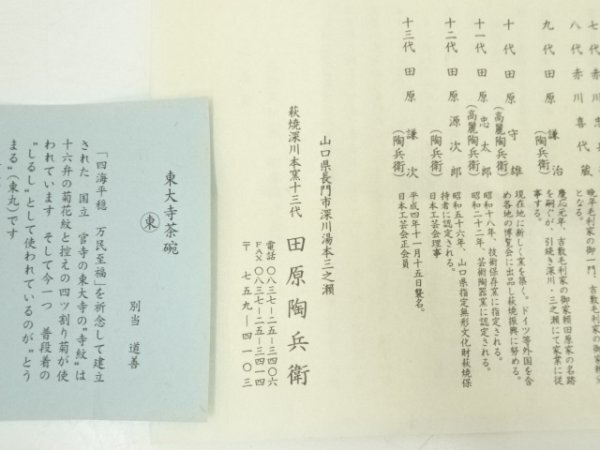 七代 赤川喜
八代 赤川喜代蔵
晩年毛利家の御一門、吉敷毛利家の御家頼分
となる。
九代 田原 謙治
(陶兵衛)
慶応元年、吉敷毛利家の御家頼田原家の名跡
を嗣ぐが、引続き深川・三之瀬にて家業に従
事する。
十代 田原 守雄
(高麗陶兵衛)
現在地に新しく窯を築く。ドイツ等外国を含
め各地の博覧会に出品し萩焼振興に努める。
十一代 田原 忠太郎
(高麗陶兵衛)
昭和十八年、技術保存窯に指定される。
昭和二十二年、芸術陶器窯に認定される。
十二代 田原 源次郎
(陶兵衛)
昭和五十六年、山口県指定無形文化財萩焼保
持者に認定される。
日本工芸会理事
十三代 田原 謙次
(陶兵衛)
平成四年十一月十五日襲名。
日本工芸会正会員
山口県長門市深川湯本三之瀬
萩焼深川本窯十三代 田原陶兵衛
電話 〇八三七-二五-三四〇六
FAX 〇八三七-二五-三四一四
〒 七五九-四一〇三
東大寺茶碗
東
別当 道善
「四海平穏 万民至福」を祈念して建立
された 国立 官寺の東大寺の"寺紋"は
十六弁の菊花紋と控えの四ツ割り菊が使
われています そして今一つ 普段着の
"しるし"として使われているのが"とう
まる"(東丸)です